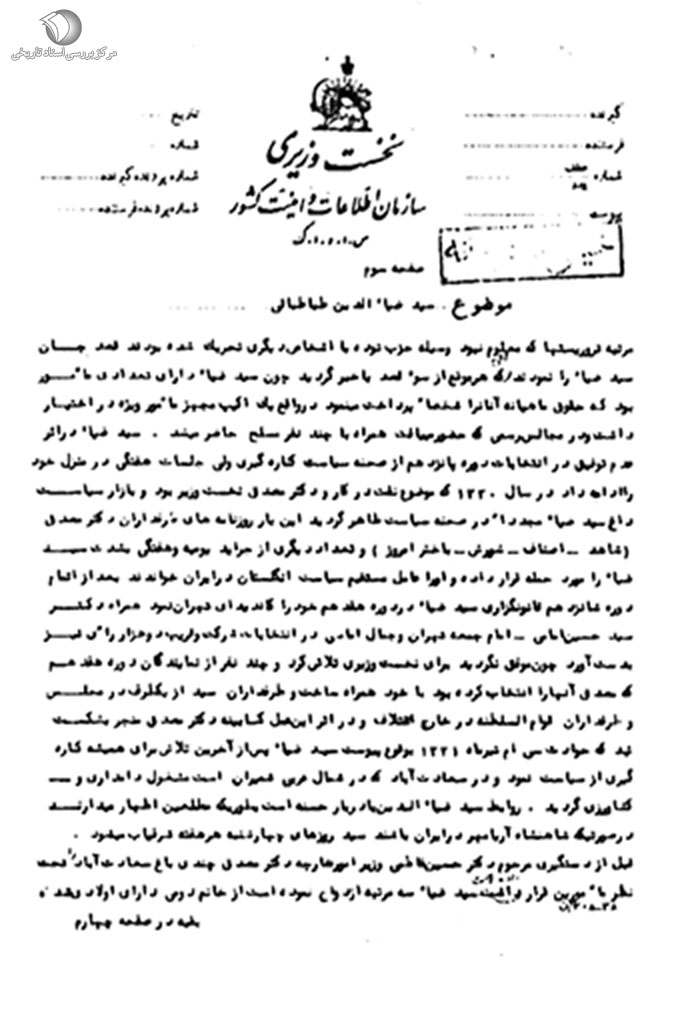 مرکز بررسی اسناد تاریخی
گیرنده
فرستنده
شماره
پیوست
نخست وزیری
سازمان اطلاعات و امنیت کشور
س.ا.و.ا.ک
تاریخ
شماره
شماره پرونده گیرنده
شماره پرونده فرستنده
صفحه سوم
موضوع سید ضیاء الدین طباطبائی
مرتبه تروریستها که معلوم نبود وسیله حزب توده یا اشخاص دیگری تحریک شده بودند قصد جان
سید ضیاء را نمودند که هر موقع از سوء قصد باخبر گردید چون سید ضیاء دارای تعدادی مامور
بود که حقوق ماهیانه آنانرا شخصا پرداخت مینمود در واقع یک اکیپ مجهز مامور ویژه در اختیار
داشت ودر مجالس رسمی که حضور مییافت همراه با چند نفر مسلح حاضر میشد . سید ضیاء در اثر
عدم توفیق در انتخابات دوره پانزدهم از صحنه سیاست کناره گیری ولی جلسات هفتگی در منزل خود
را ادامه داد در سال ۱۳۳۰ که موضوع نفت در کار و دکتر مصدق نخست وزیر بود و بازار سیاست
داغ سید ضیاء مجددا در صحنه سیاست ظاهر گردید این بار روزنامه های طرفداران دکتر مصدق
(شاهد ـ اصناف ـ شورش ـ باختر امروز ) و تعداد دیگری از جراید یومیه وهفتگی بشدت سید
ضیاء را مورد حمله قرار داده و اورا عامل مستقیم سیاست انگلستان در ایران خواندند بعد از اتمام
دوره شانزدهم قانونگزاری سید ضیاء در دوره هفدهم خود را کاندیدای تهران نمود همراه دکتر
سید حسن امامی ـ امام جمعه تهران وجمال امامی در انتخابات شرکت و قریب دو هزار رای نیز
بدست آورد چون موفق نگردید برای نخست وزیری تلاش کرد و چند نفر از نمایندگان دوره هفدهم
که مصدق آنهارا انتخاب کرده بود با خود همراه ساخت و طرفداران سید از یکطرف در مجلس
و طرفداران قوام السلطنه در خارج ائتلاف و در اثر این عمل کابینه دکتر مصدق منجر بشکست
شد که حوادث سی ام تیرماه ۱۳۳۱ بوقوع پیوست سید ضیاء پس از آخرین تلاش برای همیشه کناره
گیری از سیاست نمود و در سعادت آباد که در شمال غربی شمیران است مشغول دامداری و ـ
کشاورزی گردید . روابط سید ضیاء الدین بادربار حسنه است بطوریکه مطلعین اظهار میدارند
در صورتیکه شاهنشاه آریامهر در ایران باشند سید روزهای چهارشنبه هر هفته شرفیاب میشود .
قبل از دستگیری مرحوم دکتر حسین فاطمی وزیر امور خارجه دکتر مصدق چندی باغ سعادت آباد تحت
نظر مامورین قرار داشت سید ضیاء سه مرتبه ازدواج نموده است از خانم دومی دارای اولاد نشده
بقیه در صفحه چهارم